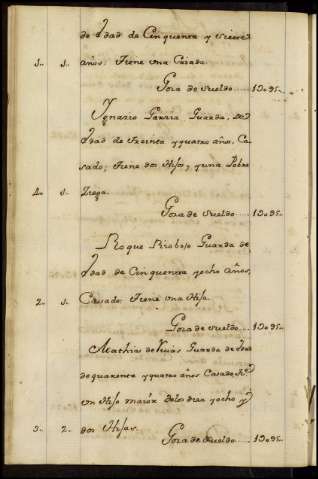 de Edad de Cinquenta y
años. Tiene una Casada.
Goza de sueldo .... 1095.
Ygnacio Garzia, Guarda, de
Edad de Treinta y quatro años, Ca
sado; Tiene dos Hijos, y una
4. 1.
Goza de sueldo .... 1095.
Roque Guarda de
Edad de Cinquenta y ocho años,
2. 1. Casado Tiene una Hija
Goza de sueldo .... 1095.
Mathias de Guarda de Edad
de quarenta y quatro años Casado
un Hijo maior de los diez y ocho y
3. 2. dos Hijas.
Goza de sueldo .... 1095.